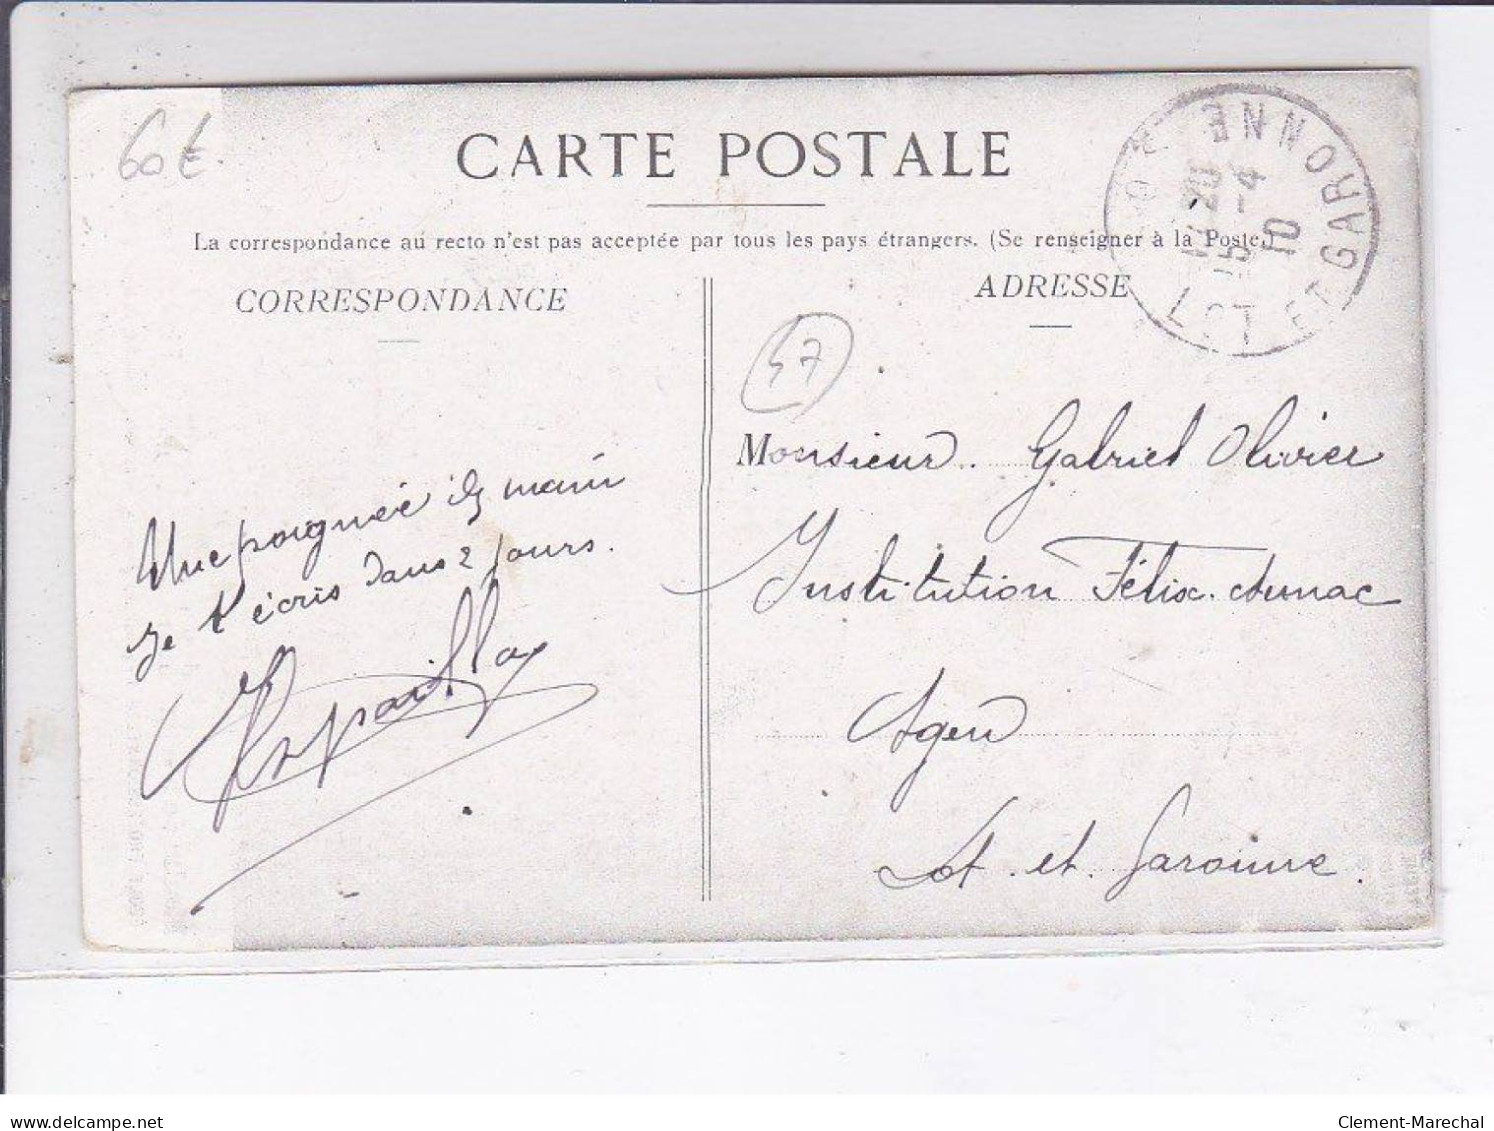 60€
CARTE POSTALE
La correspondance au recto n'est pas acceptée par tous les pays étrangers. (Se renseigner à la Poste.)
CORRESPONDANCE
ADRESSE
LOT ET GARONNE
20
5 -4
10
47
Monsieur. Gabriel Olivier
Institution Félix-Aunac
Agen
Lot et Garonne.
Une poignée de main
Je t'écris dans 2 jours.
delcampe.net
Clement-Marechal